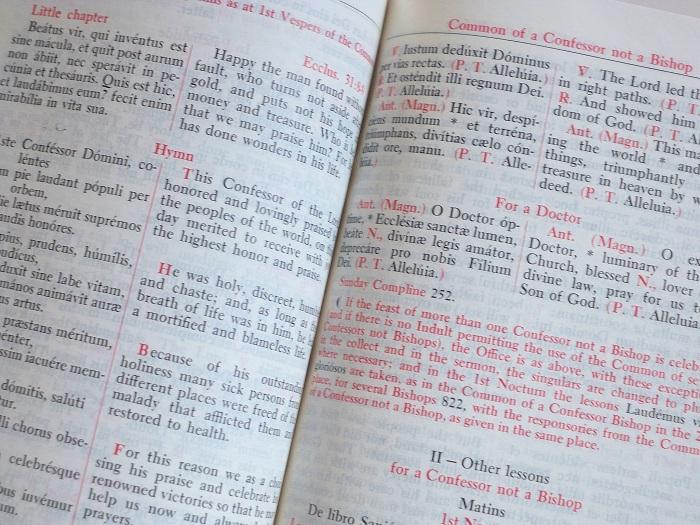 ns as at 1st Vespers of the Comm
Little chapter
Beátus vir, qui invéntus est
sine mácula, et quit post aurum
non ábiit, nec sperávit in pe-
cúnia et thesáuris. Quis est hic,
et laudábimus eum? fecit enim
mirabília in vita sua.
Ecclus. 31:8-
Happy the man found
fault, who turns not aside
gold, and puts not his hope
money and treasure. Who is
that we may praise him? For
has done wonders in his life.
Hymn
ste Conféssor Dómini, co-
léntes
m pie laudant pópuli per
orbem,
ie lætus méruit suprémos
audis honóres.
pius, prudens, húmilis,
pudícus,
duxit sine labe vitam,
mános animávit auræ
us artus.
præstans méritum,
énter,
ssim iacuére mem-
dómitis, salúti
tur.
lli chorus obse-
celebrésque
bus iuvémur
um.
This Confessor of the Lo
honored and lovingly praised
the peoples of the world, on
day merited to receive with
the highest honor and praise.
He was holy, discreet, humble
and chaste; and, as long as
breath of life was in him, he
a mortified and blameless life
Because of his outstanding
holiness many sick persons from
different places were freed of
malady that afflicted them
restored to health.
For this reason we as a
sing his praise and celebrate
renowned victories so that he
help us now and
prayers.
Common of a Confessor not a Bishop
V. Iustum dedúxit Dóminus
per vias rectas. (P. T. Allelúia.)
R. Et osténdit illi regnum Dei.
P. T. Allelúia.)
Ant. (Magn.) Hic vir, despí-
ciens mundum * et terréna,
triúmphans, divítias cælo cón-
didit ore, manu. (P. T. Alle-
lúia.)
V. The Lord led th
in right paths. (P. T.
R. And showed him
dom of God. (P. T. A
Ant. (Magn.) This m
ing the world * and
things, triumphantly
treasure in heaven by w
deed. (P. T. Allelúia.)
For a Doctor
Ant. (Magn.) O Doctor óp-
time, * Ecclésiæ sanctæ lumen,
beáte N., divínæ legis amátor,
deprecáre pro nobis Fílium
Dei. (P. T. Allelúia.)
Ant. (Magn.) O ex
Doctor, * luminary of th
Church, blessed N., lover
divine law, pray for us t
Son of God. (P. T. Allelúia.
Sunday Compline 252.
( If the feast of more than one Confessor not a Bishop is celeb
and if there is no Indult permitting the use of the Common of se
Confessors not Bishops), the Office is as above, with these excepti
in the collect and in the sermon, the singulars are changed to pl
where necessary; and in the 1st Nocturn the lessons Laudémus v
gloriósos are taken, as in the Common of a Confessor Bishop in the 2
place, for several Bishops 822, with the responsories from the Comm
of a Confessor not a Bishop, as given in the same place.
II – Other lessons
for a Confessor not a Bishop
Matins
1st N
De libro